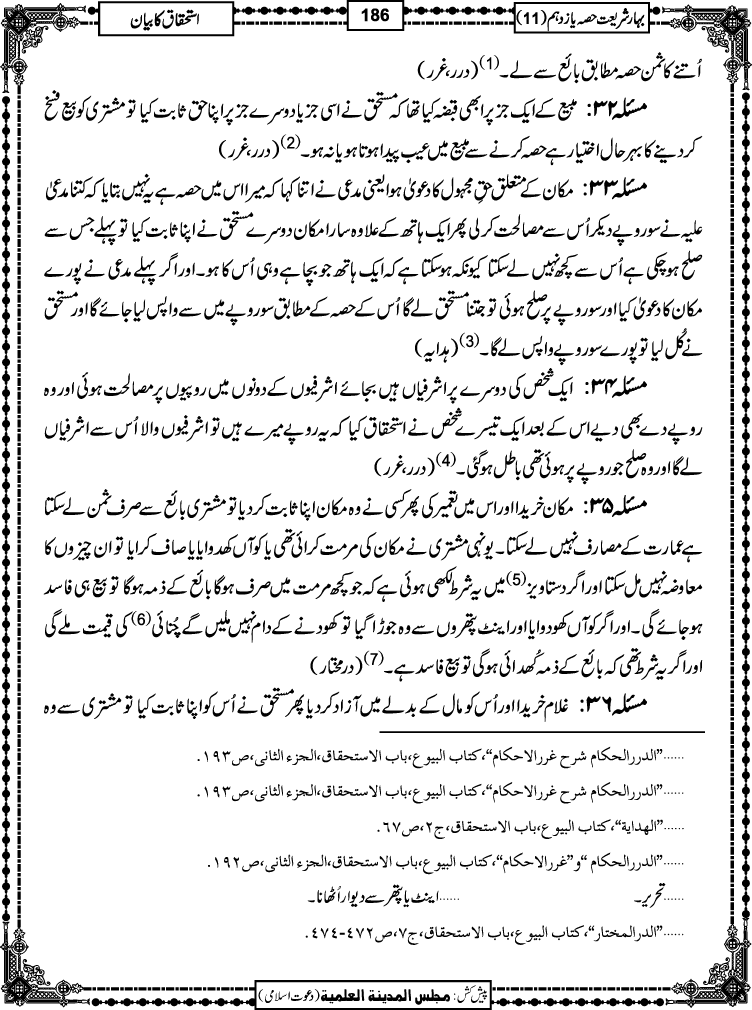 بہار شریعت حصہ یازدہم (11)
186
استحقاق کا بیان
اُتنے کا ثمن حصہ مطابق بائع سے لے۔(1) (درر، غرر)
مسئلہ ۳۲: مبیع کے ایک جز پر ابھی قبضہ کیا تھا کہ مستحق نے اسی جز یا دوسرے جز پر اپنا حق ثابت کیا تو مشتری کو بیع فسخ
کر دینے کا بہر حال اختیار ہے حصہ کرنے سے مبیع میں عیب پیدا ہوتا ہو یا نہ ہو۔(2) (درر، غرر)
مسئلہ ۳۳: مکان کے متعلق حق مجہول کا دعویٰ ہوا یعنی مدعی نے اتنا کہا کہ میرا اس میں حصہ ہے یہ نہیں بتایا کہ کتنا مدعیٰ
علیہ نے سو روپے دیکر اُس سے مصالحت کر لی پھر ایک ہاتھ کے علاوہ سارا مکان دوسرے مستحق نے اپنا ثابت کیا تو پہلے جس سے
صلح ہو چکی ہے اُس سے کچھ نہیں لے سکتا کیونکہ ہو سکتا ہے کہ ایک ہاتھ جو بچا ہے وہی اُس کا ہو۔ اور اگر پہلے مدعی نے پورے
مکان کا دعویٰ کیا اور سو روپے پر صلح ہوئی تو جتنا مستحق لے گا اُس کے حصہ کے مطابق سو روپے میں سے واپس لیا جائے گا اور مستحق
نے کُل لیا تو پورے سو روپے واپس لے گا۔(3) (ہدایہ)
مسئلہ ۳۴: ایک شخص کی دوسرے پر اشرفیاں ہیں بجائے اشرفیوں کے دونوں میں روپیوں پر مصالحت ہوئی اور وہ
روپے دے بھی دیے اس کے بعد ایک تیسرے شخص نے استحقاق کیا کہ یہ روپے میرے ہیں تو اشرفیوں والا اُس سے اشرفیاں
لے گا اور وہ صلح جو روپے پر ہوئی تھی باطل ہو گئی۔(4) (درر، غرر)
مسئلہ ۳۵: مکان خریدا اور اس میں تعمیر کی پھر کسی نے وہ مکان اپنا ثابت کر دیا تو مشتری بائع سے صرف ثمن لے سکتا
ہے عمارت کے مصارف نہیں لے سکتا۔ یونہی مشتری نے مکان کی مرمت کرائی تھی یا کوآں کھدوایا یا صاف کرایا تو ان چیزوں کا
معاوضہ نہیں مل سکتا اور اگر دستاویز(5) میں یہ شرط لکھی ہوئی ہے کہ جو کچھ مرمت میں صرف ہوگا بائع کے ذمہ ہوگا تو بیع ہی فاسد
ہو جائے گی۔ اور اگر کوآں کھودوایا اور اینٹ پتھروں سے وہ جوڑا گیا تو کھودنے کے دام نہیں ملیں گے چُنائی(6) کی قیمت ملے گی
اور اگر یہ شرط تھی کہ بائع کے ذمہ کُھدائی ہوگی تو بیع فاسد ہے۔(7) (درمختار)
مسئلہ ۳۶: غلام خریدا اور اُس کو مال کے بدلے میں آزاد کر دیا پھر مستحق نے اُس کو اپنا ثابت کیا تو مشتری سے وہ
......"الدررالحکام شرح غررالاحکام"، کتاب البیوع، باب الاستحقاق، الجزء الثانی، ص۱۹۳.
......"الدررالحکام شرح غررالاحکام"، کتاب البیوع، باب الاستحقاق، الجزء الثانی، ص۱۹۳.
......"الهدایة"، کتاب البیوع، باب الاستحقاق، ج۲، ص۶۷.
......"الدررالحکام" و"غررالاحکام"، کتاب البیوع، باب الاستحقاق، الجزء الثانی، ص۱۹۲.
......تحریر۔ ......اینٹ یا پتھر سے دیوار اُٹھانا۔
......"الدرالمختار"، کتاب البیوع، باب الاستحقاق، ج۷، ص۴۷۲-۴۷۴.
پیش کش: مجلس المدینة العلمیة (دعوت اسلامی)